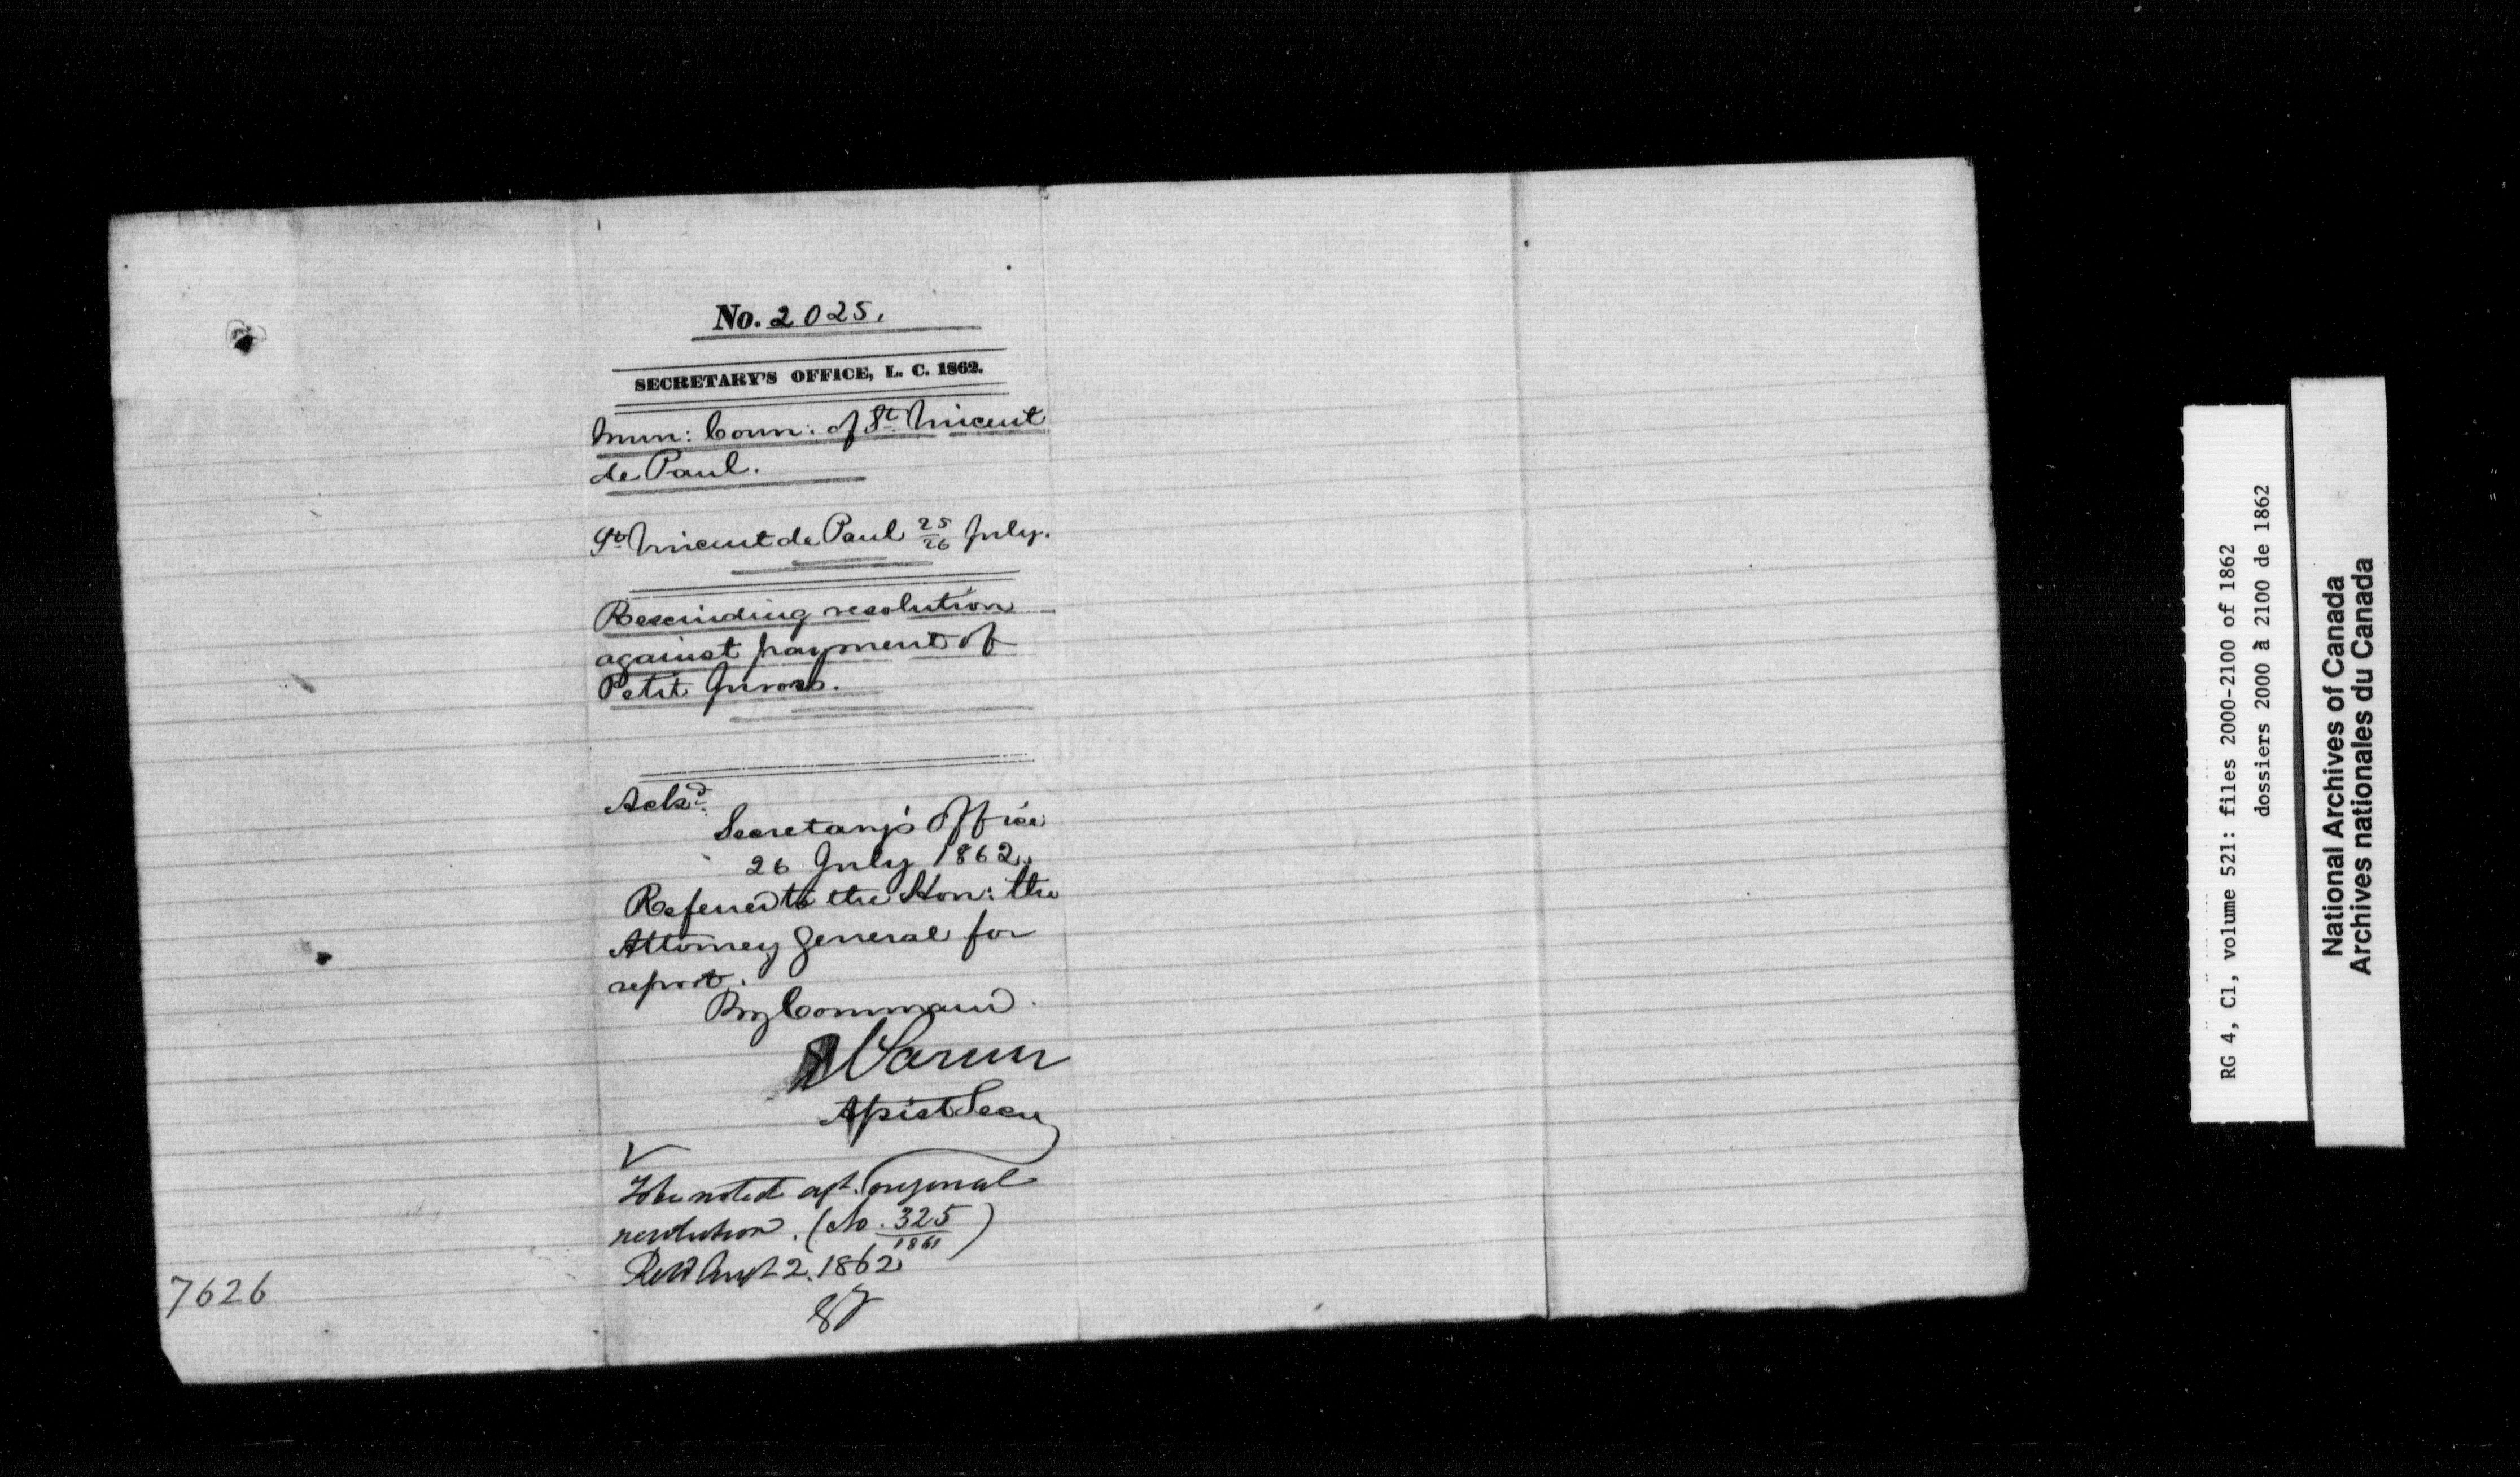 No. 2025.
SECRETARY'S OFFICE, L. C. 1862.
Mun: Coun: of St. Vincent
de Paul.
St. Vincent de Paul 25/26 July.
Rescinding resolution
against payment of
Petit Jurors.
Ackd.
Secretary's Office
26 July 1862.
Referred to the Hon: the
Attorney General for
report.
By Command.
Assist Secy
To be noted agt. original
resolution. (No. 325/1861)
Retd Augt 2. 1862
7626
RG 4, C1, volume 521: files 2000-2100 of 1862
dossiers 2000 à 2100 de 1862
National Archives of Canada
Archives nationales du Canada